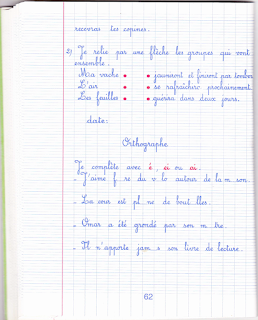 recevras tes copines.
2) Je relie par une flèche les groupes qui vont
ensemble.
Ma vache • • jauniront et finiront par tomber
L'air • • se rafraîchir prochainement.
Les feuilles • • guérira dans deux jours.
date:
Orthographe
Je complète avec è, ei ou ai.
- J'aime f re du v lo autour de la m son.
- La cour est pl ne de bout lles.
- Omar a été grondé par son m tre.
- Il n'apporte jam s son livre de lecture.
62